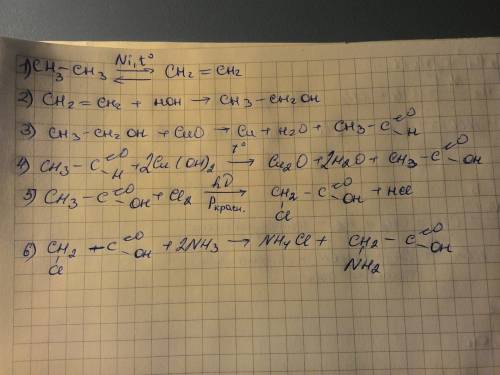 1) CH3-CH3 ⇄ (Ni, t°) CH2 = CH2
2) CH2 = CH2 + HOH → CH3 - CH2OH
3) CH3-CH2OH + CuO → Cu + H2O + CH3-C(=O)H
4) CH3 - C(=O)H + 2Cu(OH)2 →(T°) Cu2O + 2H2O + CH3-C(=O)OH
5) CH3 - C(=O)OH + Cl2 →(hD, Pкрасн.) CH2(Cl) - C(=O)OH + HCl
6) CH2(Cl) - C(=O)OH + 2NH3 → NH4Cl + CH2(NH2) - C(=O)OH